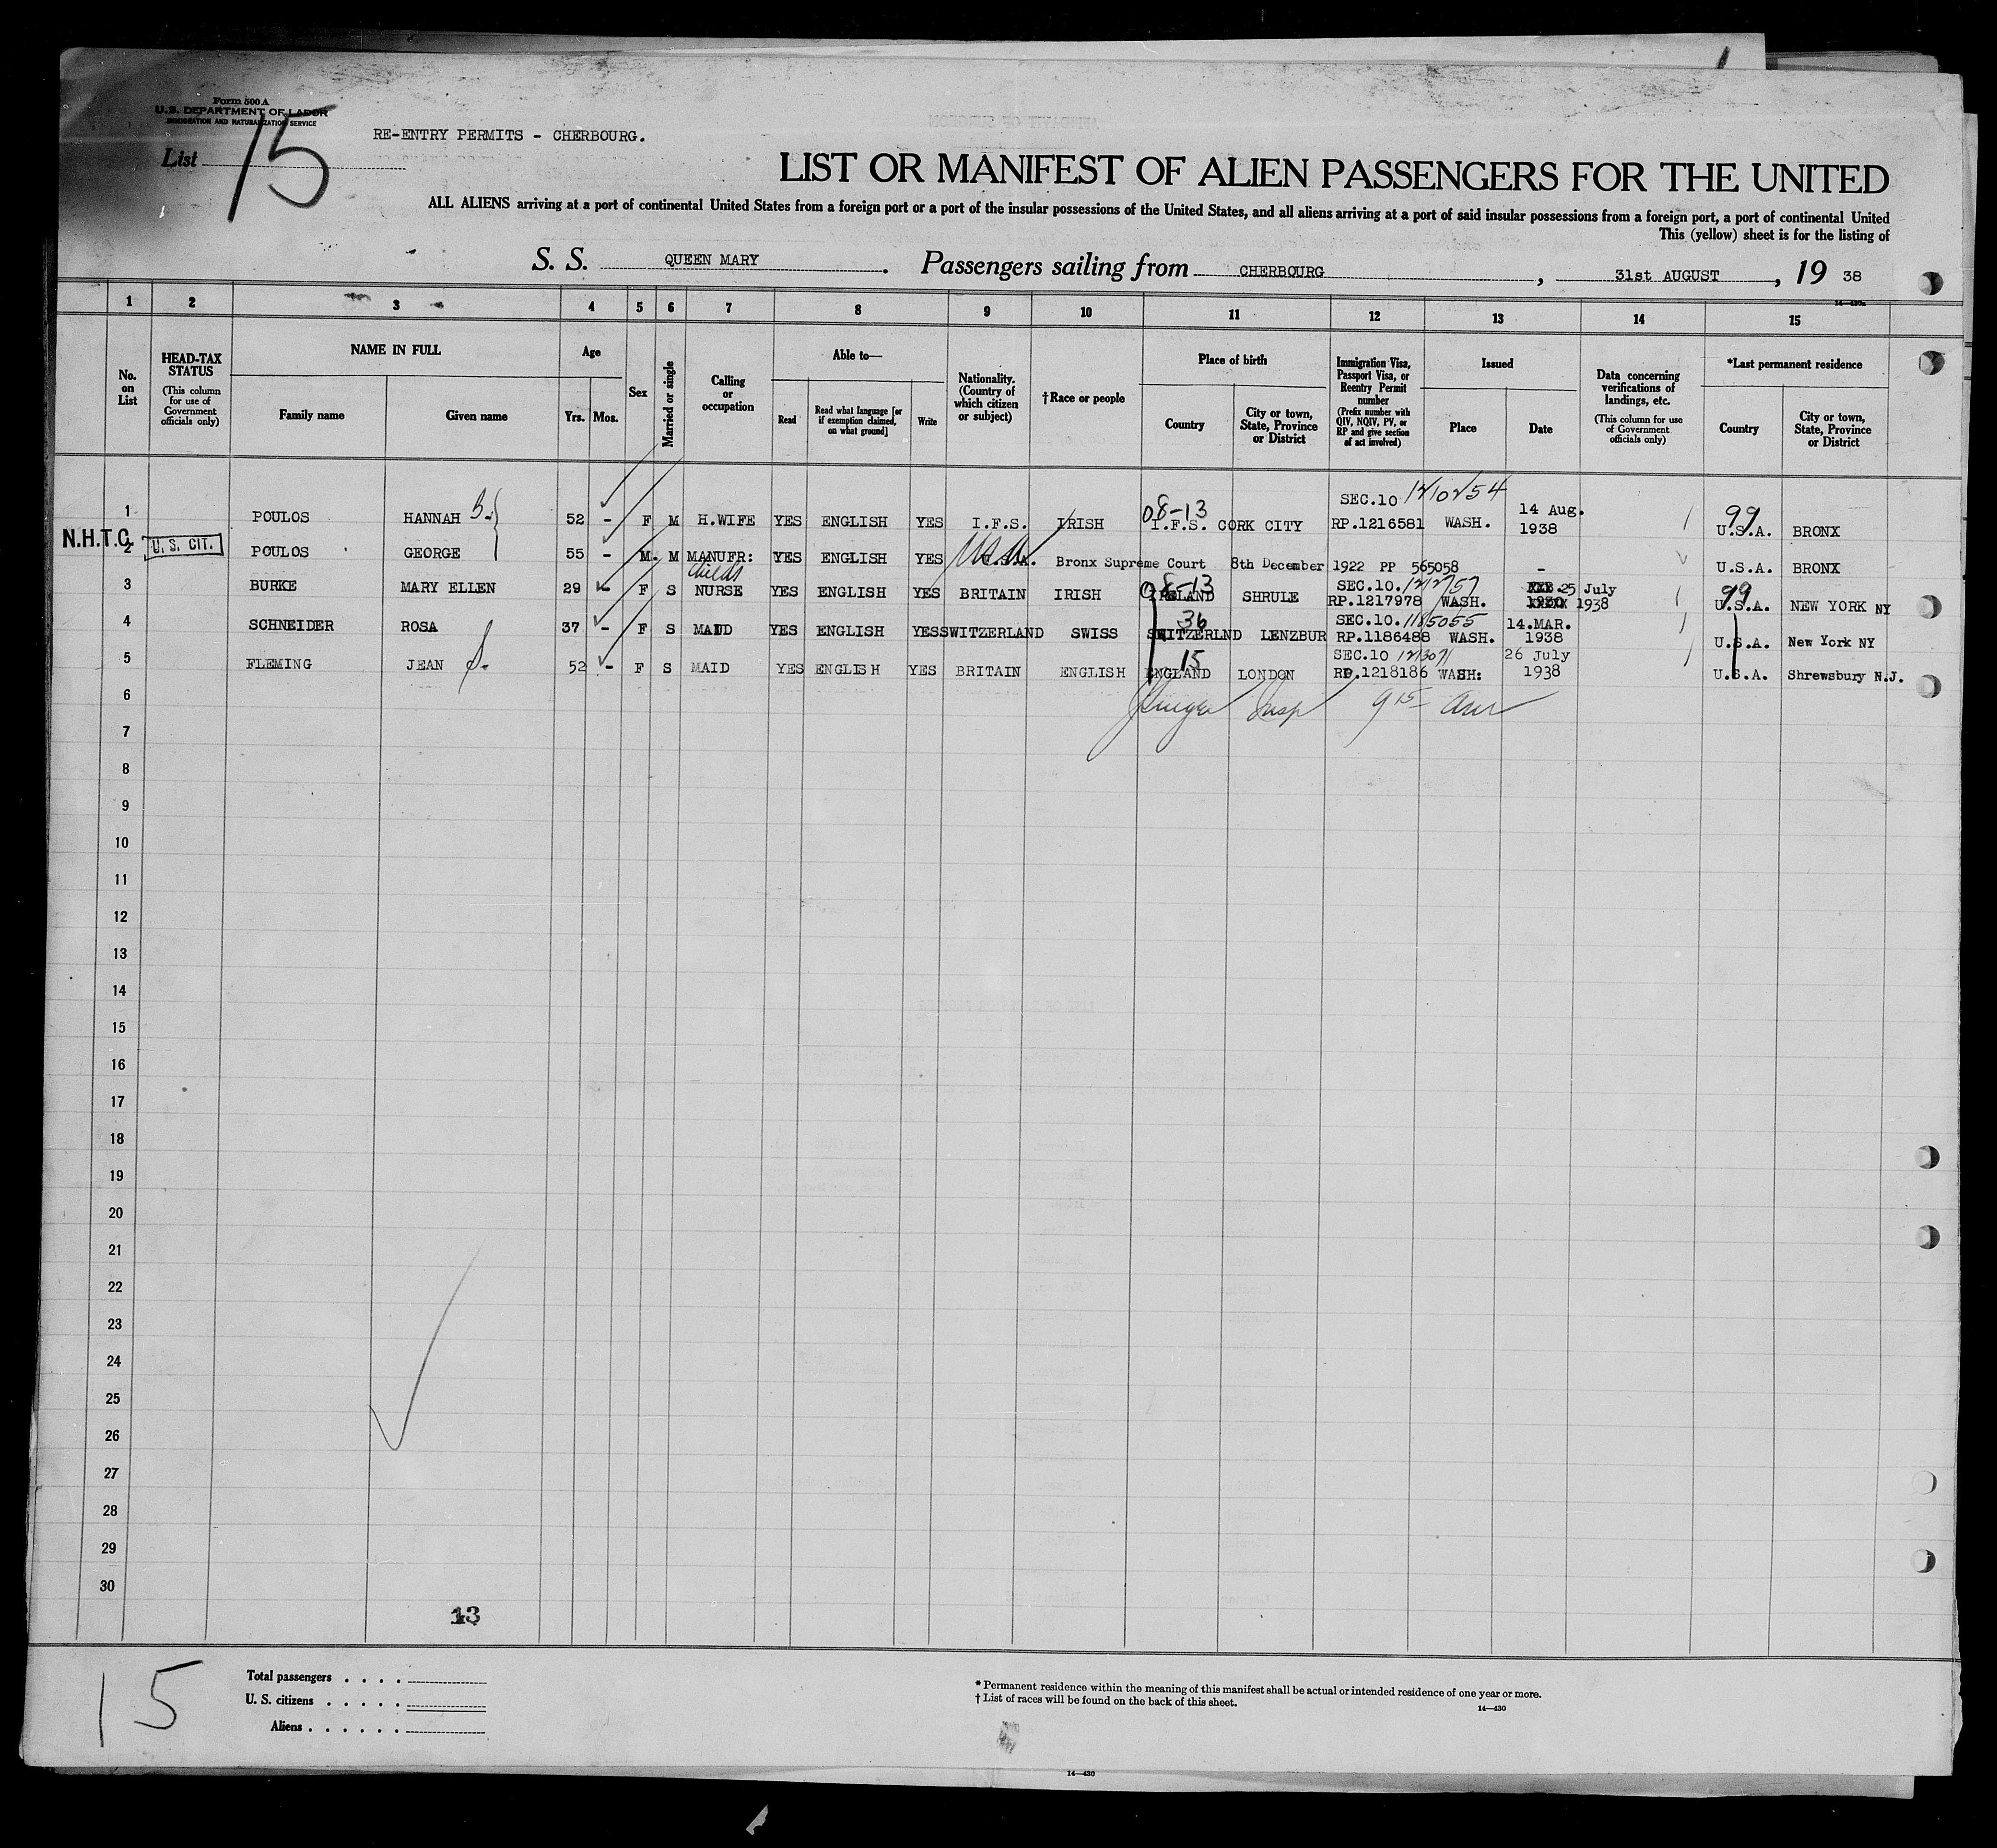 Form 500 A
U.S. DEPARTMENT OF LABOR
IMMIGRATION AND NATURALIZATION SERVICE
RE-ENTRY PERMITS - CHERBOURG.
List 15
LIST OR MANIFEST OF ALIEN PASSENGERS FOR THE UNITED
ALL ALIENS arriving at a port of continental United States from a foreign port or a port of the insular possessions of the United States, and all aliens arriving at a port of said insular possessions from a foreign port, a port of continental United
This (yellow) sheet is for the listing of
S. S. QUEEN MARY. Passengers sailing from CHERBOURG, 31st AUGUST, 19 38
1 2 3 4 5 6 7 8 9 10 11 12 13 14 15
No. on List
HEAD-TAX STATUS (This column for use of Government officials only)
NAME IN FULL
Family name Given name
Age
Yrs. Mos.
Sex
Married or single
Calling or occupation
Able to—
Read
Read what language [or if exemption claimed, on what ground]
Write
Nationality. (Country of which citizen or subject)
†Race or people
Place of birth
Country
City or town, State, Province or District
Immigration Visa, Passport Visa, or Reentry Permit number (Prefix number with QIV, NQIV, PV, or RP and give section of act involved)
Issued
Place Date
Data concerning verifications of landings, etc. (This column for use of Government officials only)
*Last permanent residence
Country
City or town, State, Province or District
SEC.10 1210254 14 Aug.
08-13 99
1 POULOS HANNAH B. 52 - F M H.WIFE YES ENGLISH YES I.F.S. IRISH I.F.S. CORK CITY RP.1216581 WASH. 1938 U.S.A. BRONX
N.H.T.C. U. S. CIT.
2 POULOS GEORGE 55 - M. M MANUFR: YES ENGLISH YES U.S.A. Bronx Supreme Court 8th December 1922 PP 565058 - U.S.A. BRONX
childs 08-13 SEC.10. 1212757 25 July 99
3 BURKE MARY ELLEN 29 - F S NURSE YES ENGLISH YES BRITAIN IRISH SHRULE RP.1217978 WASH. 1938 U.S.A. NEW YORK NY
36 SEC.10. 1185055 14.MAR.
4 SCHNEIDER ROSA 37 - F S MAID YES ENGLISH YES SWITZERLAND SWISS SWITZERLND LENZBUR RP.1186488 WASH. 1938 U.S.A. New York NY
15 SEC.10 1213071 26 July
5 FLEMING JEAN S. 52 - F S MAID YES ENGLISH YES BRITAIN ENGLISH ENGLAND LONDON RP.1218186 WASH: 1938 U.S.A. Shrewsbury N.J.
6
Insp 9 15
7
8
9
10
11
12
13
14
15
16
17
18
19
20
21
22
23
24
25
26
27
28
29
30
13
15
Total passengers . . . .
U. S. citizens . . . . .
Aliens . . . . . .
* Permanent residence within the meaning of this manifest shall be actual or intended residence of one year or more.
† List of races will be found on the back of this sheet.
14—430
14—430